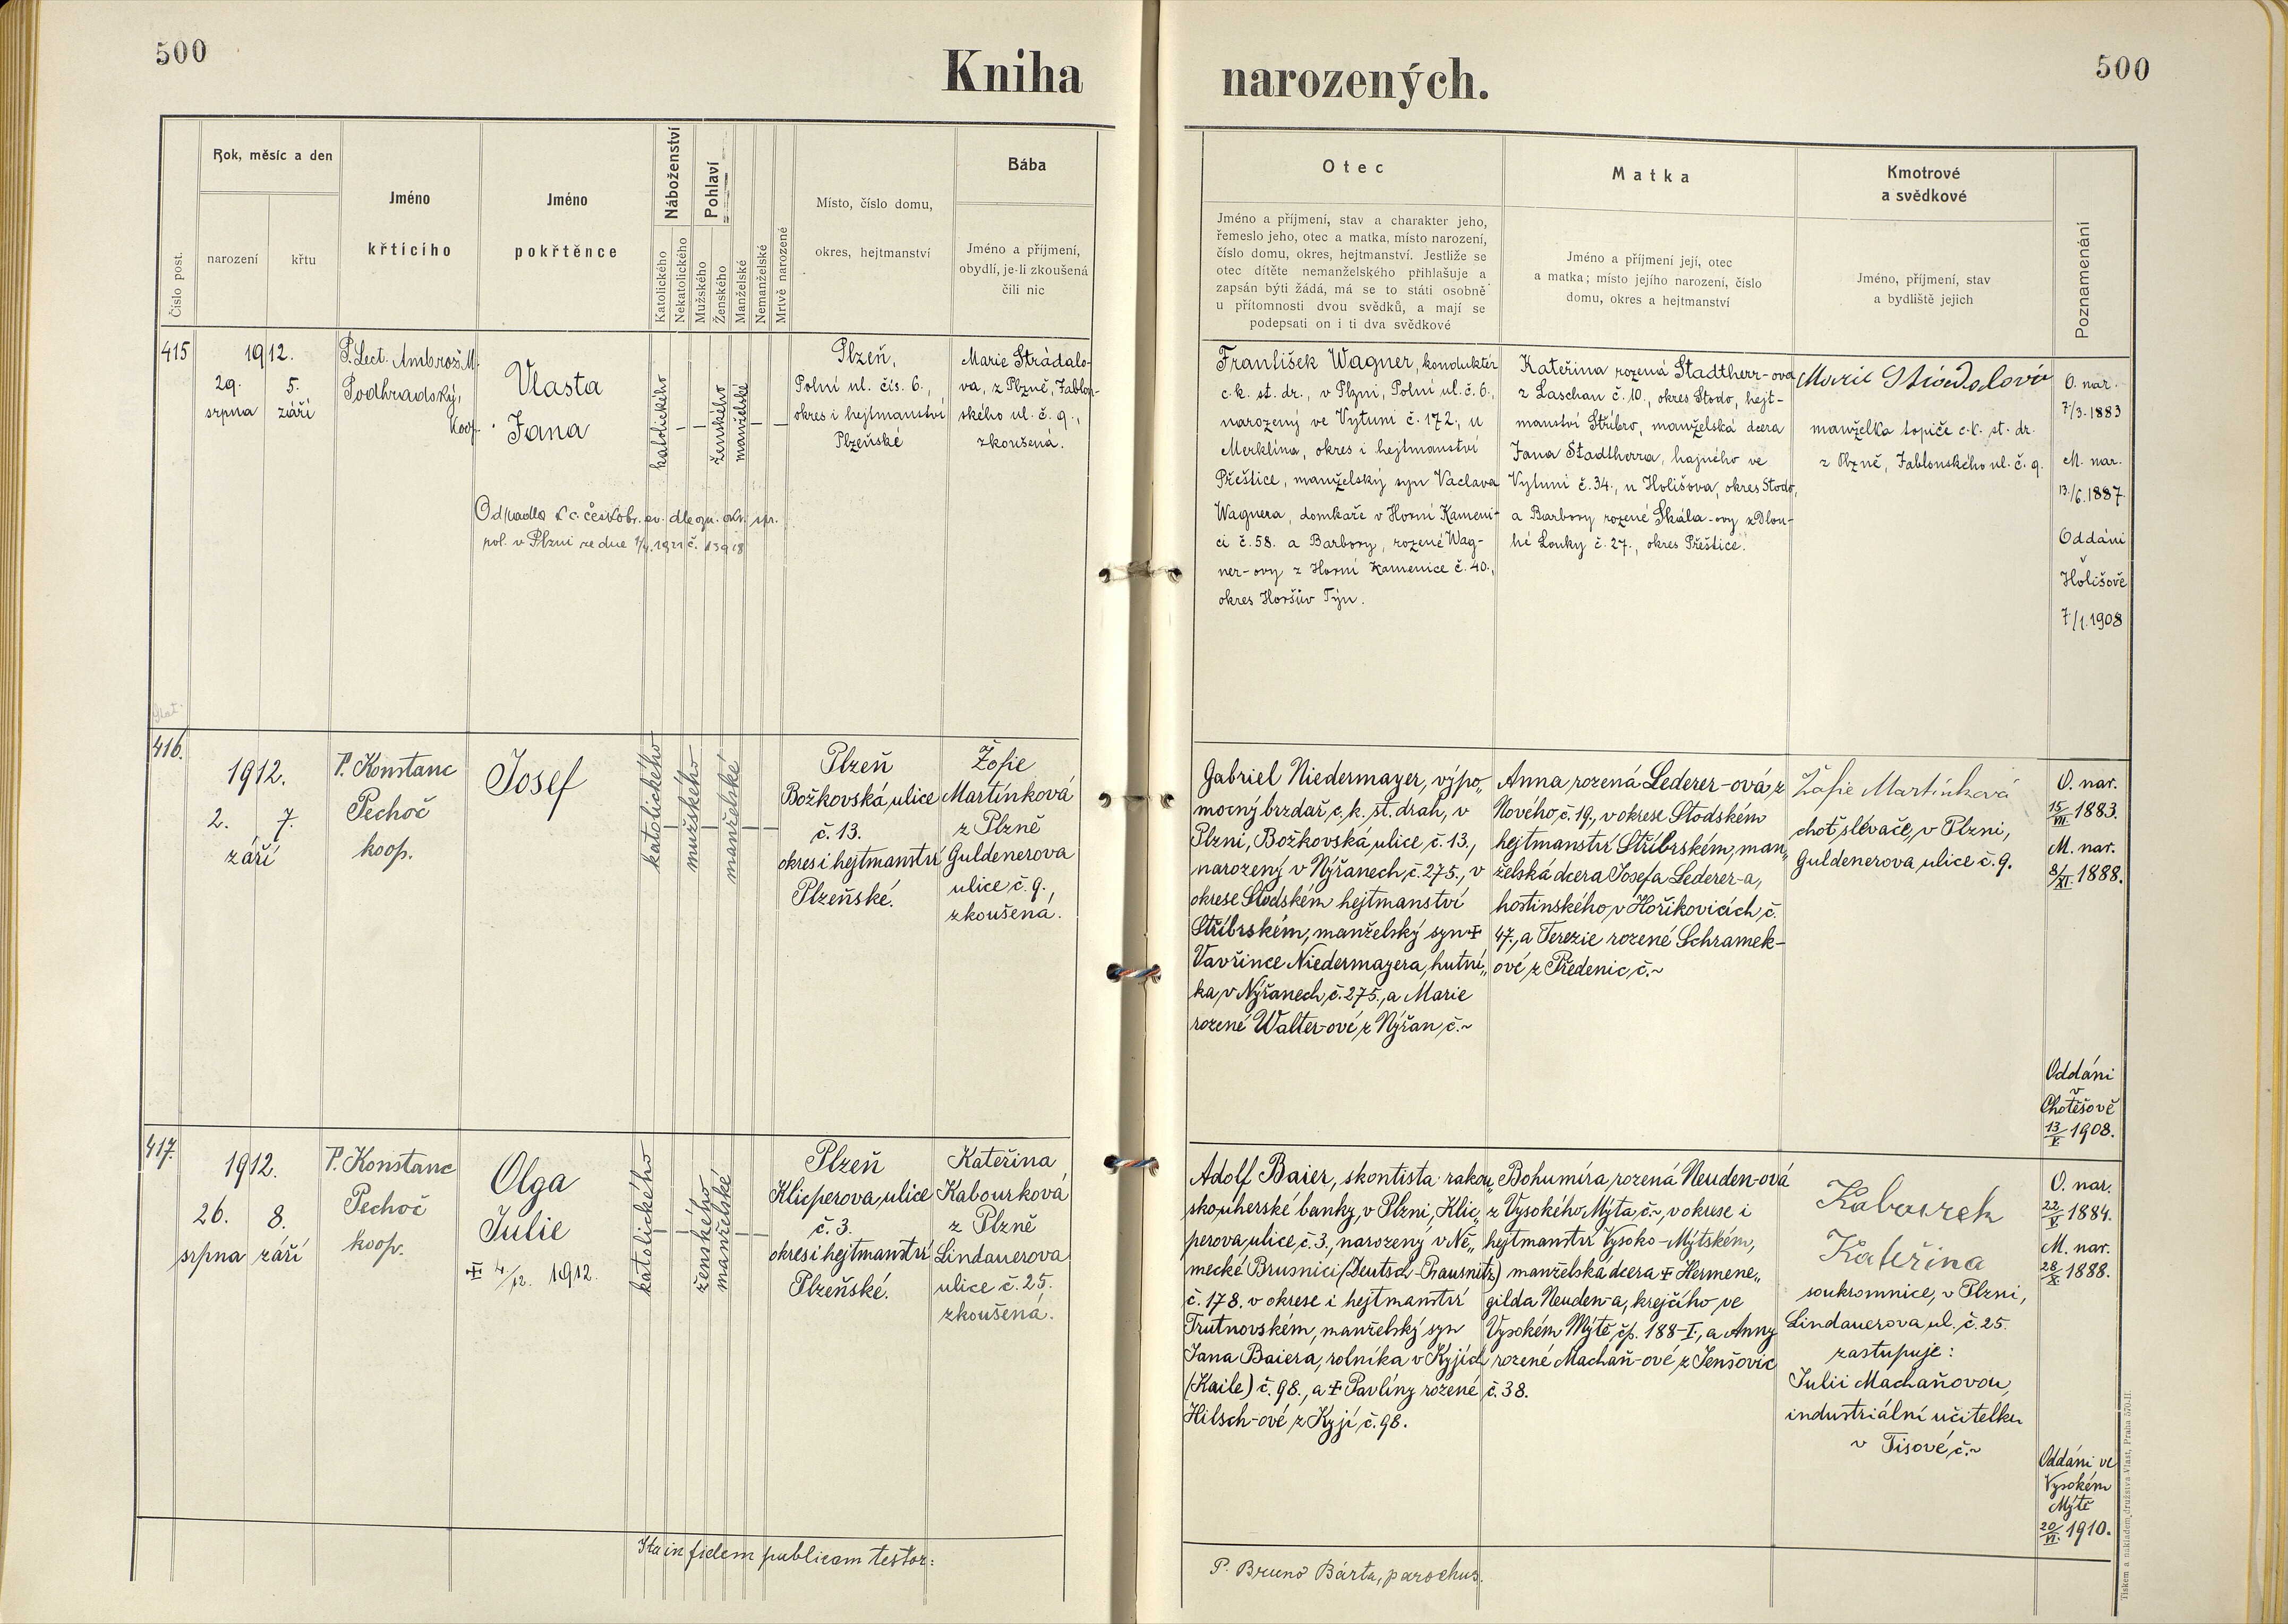 500
Kniha narozených.
500
Číslo post.
Rok, měsíc a den
narození
křtu
Jméno
křtícího
Jméno
pokřtěnce
Náboženství
Katolického
Nekatolického
Pohlaví
Mužského
Ženského
Manželské
Nemanželské
Mrtvě narozené
Místo, číslo domu,
okres, hejtmanství
Bába
Jméno a příjmení,
obydlí, je-li zkoušená
čili nic
Otec
Jméno a příjmení, stav a charakter jeho,
řemeslo jeho, otec a matka, místo narození,
číslo domu, okres, hejtmanství. Jestliže se
otec dítěte nemanželského přihlašuje a
zapsán býti žádá, má se to státi osobně
u přítomnosti dvou svědků, a mají se
podepsati on i ti dva svědkové
Matka
Jméno a příjmení její, otec
a matka; místo jejího narození, číslo
domu, okres a hejtmanství
Kmotrové
a svědkové
Jméno, příjmení, stav
a bydliště jejich
Poznamenání
415
1912.
29. 5.
srpna září
P. Lect. Ambrož M.
Podhradský,
koop.
Vlasta
Jana
Odpadla k c. českobr. ev. dle ozn. okr. spr.
pol. v Plzni ze dne 1/4. 1921 č. 13918
katolického
ženského
manželské
Plzeň,
Polní ul. čís. 6.,
okres i hejtmanství
Plzeňské
Marie Strádalo-
va, z Plzně, Jablon-
ského ul. č. 9.,
zkoušená.
František Wagner, konduktér
c. k. st. dr., v Plzni, Polní ul. č. 6.,
narozený ve Vytuni č. 172, u
Merklína, okres i hejtmanství
Přeštice, manželský syn Václava
Wagnera, domkaře v Horní Kameni-
ci č. 58. a Barbory, rozené Wag-
ner-ovy z Horní Kamenice č. 40.,
okres Horšův Týn.
Kateřina rozená Stadtherr-ova
z Laschan č. 10., okres Stodo, hejt-
manství Stříbro, manželská dcera
Jana Stadtherra, hajného ve
Vytuni č. 34., u Holišova, okres Stodo,
a Barbory rozené Skála-ovy z Dlou-
hé Louky č. 27., okres Přeštice.
Marie Strádalová
manželka topiče c. k. st. dr.
z Plzně, Jablonského ul. č. 9.
O. nar.
7/3. 1883
M. nar.
13./6. 1887.
Oddáni
v
Holišově
7/1. 1908
416.
1912.
2. 7.
září
P. Konstanc
Pechoč
koop.
Josef
katolického
mužského
manželské
Plzeň
Božkovská ulice
č. 13.
okres i hejtmanství
Plzeňské.
Žofie
Martínková
z Plzně
Guldenerova
ulice č. 9.,
zkoušená.
Gabriel Niedermayer, výpo„
mocný brzdař, c. k. st. drah, v
Plzni, Božkovská ulice č. 13.,
narozený v Nýřanech, č. 275., v
okrese Stodském hejtmanství
Stříbrském, manželský syn ‡
Vavřince Niedermayera, hutní„
ka, v Nýřanech, č. 275., a Marie
rozené Walter-ové, z Nýřan, č. ~
Anna, rozená Lederer-ová, z
Nového, č. 19., v okrese Stodském
hejtmanství Stříbrském, man„
želská dcera Josefa Lederer-a,
hostinského, v Hoříkovicích, č.
47., a Terezie rozené Schramek-
ové, z Předenic, č. ~
Žofie Martínková
choť slévače, v Plzni,
Guldenerova ulice č. 9.
O. nar.
15/VII. 1883.
M. nar.
8/XI. 1888.
Oddáni
v
Chotěšově
13/V. 1908.
417.
1912.
26. 8.
srpna září
P. Konstanc
Pechoč
koop.
Olga
Julie
‡ 4./12. 1912.
katolického
ženského
manželské
Plzeň
Klicperova, ulice
č. 3.
okres i hejtmanství
Plzeňské.
Kateřina
Kabourková
z Plzně
Lindauerova
ulice č. 25.
zkoušená.
Adolf Baier, skontista rakou„
skouherské banky, v Plzni, Klic„
perova, ulice, č. 3., narozený v Ně„
mecké Brusnici (Deutsch-Prausnitz)
č. 178. v okrese i hejtmanství
Trutnovském, manželský syn
Jana Baiera, rolníka v Kyjích
(Kaile) č. 98., a ‡ Pavlíny rozené
Hilsch-ové z Kyjí č. 98.
Bohumíra, rozená Neuden-ová
z Vysokého Mýta č. ~, v okrese i
hejtmanství Vysoko-Mýtském,
manželská dcera ‡ Hermene„
gilda Neuden-a, krejčího ve
Vysokém Mýtě, čp. 188-I., a Anny
rozené Machaň-ové z Jenšovic
č. 38.
Kabourek
Kateřina
soukromnice, v Plzni,
Lindauerova, ul. č. 25.
zastupuje:
Julii Machaňovou,
industriální učitelku
v Tisové, č. ~
O. nar.
22/V. 1884.
M. nar.
28/X. 1888.
Oddáni ve
Vysokém
Mýtě
20/VI. 1910.
Ita in fidem publicam testor:
P. Bruno Bárta, parochus.
Tiskem a nákladem družstva Vlast, Praha 570-II.